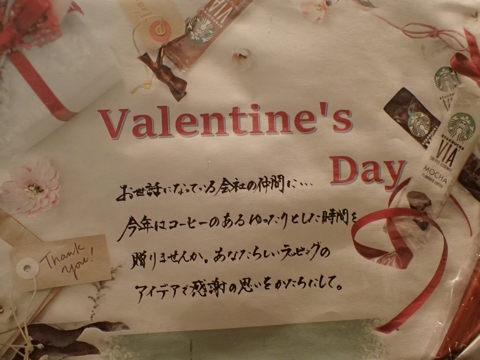 Valentine's
Day
お世話になっている会社の仲間に…
今年はコーヒーのあるゆったりとした時間を
贈りませんか。あなたらしいラッピングの
アイデアで感謝の思いをかたちにして。
Thank
you!
VIA
STARBUCKS
VIA
MOCHA